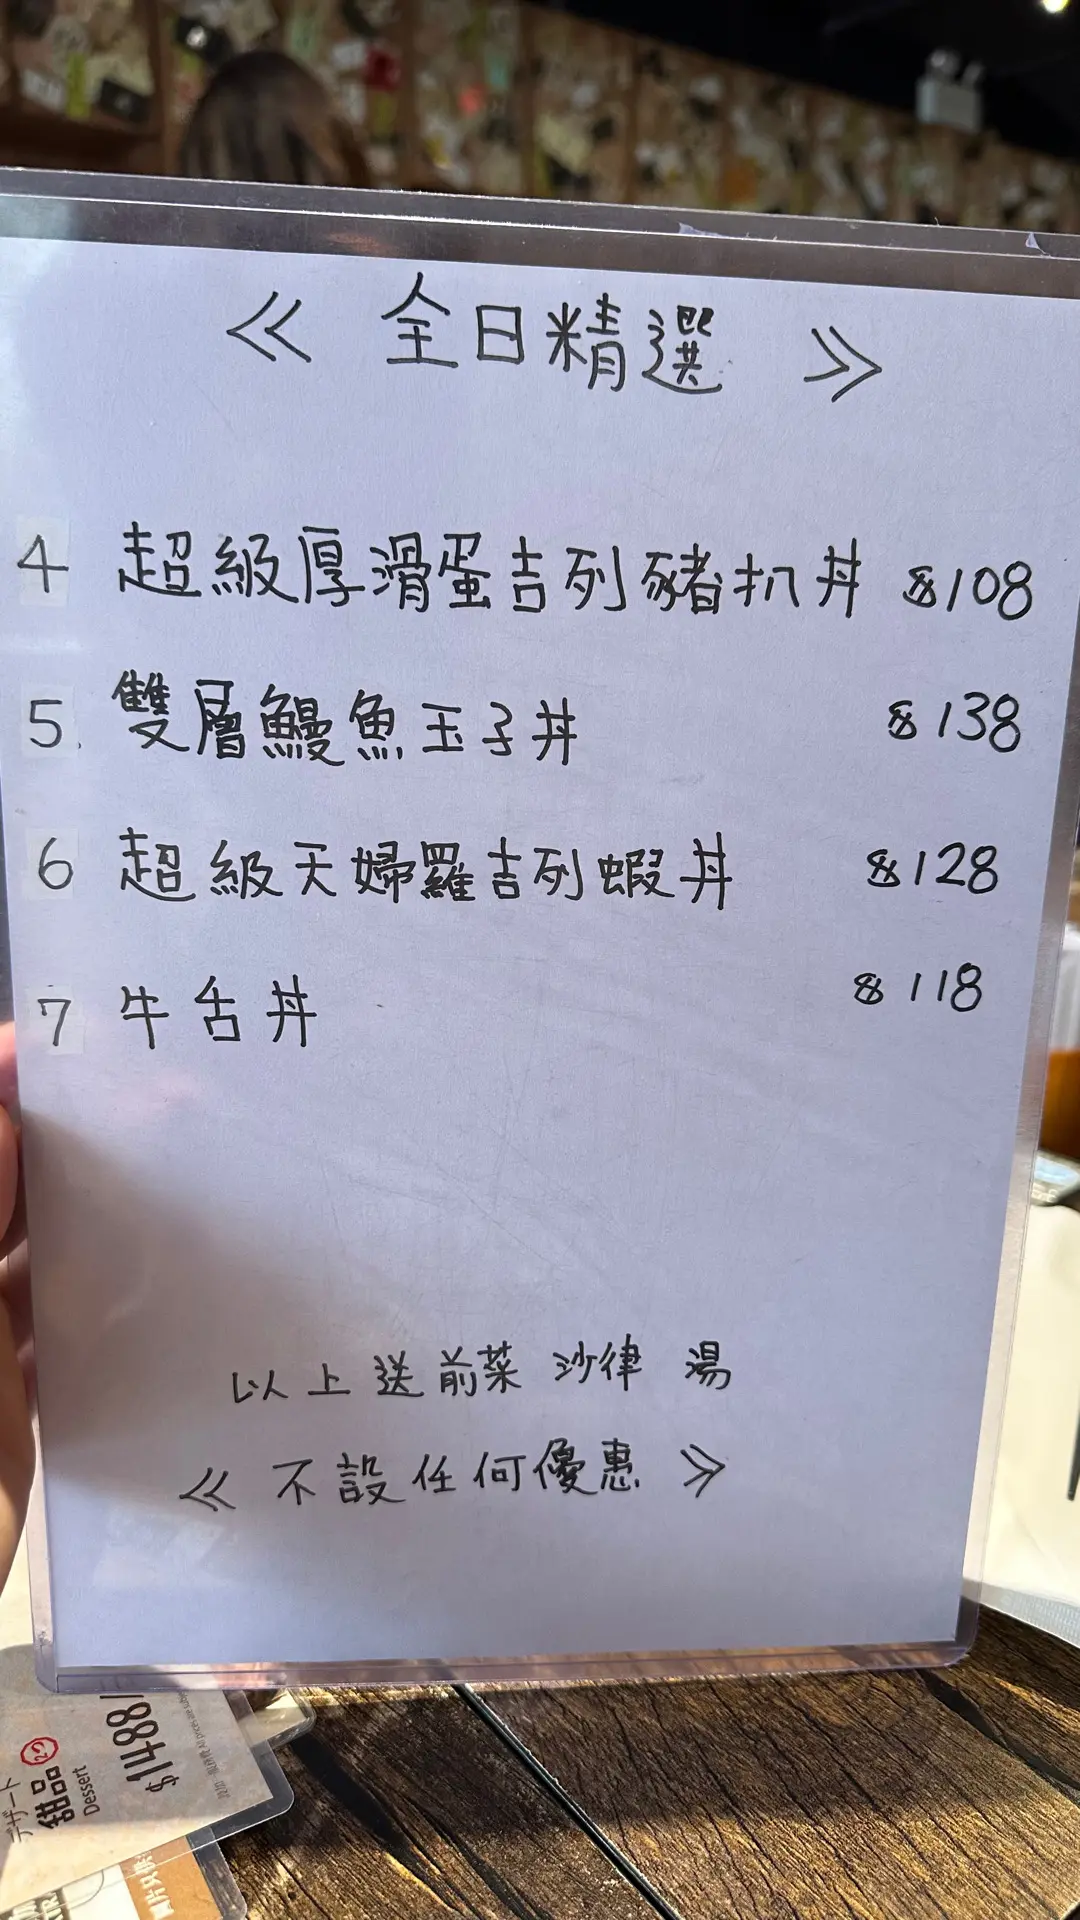 ≪ 全日精選 ≫
4 超級厚滑蛋吉列豬扒丼 $108
5. 雙層鰻魚玉子丼 $138
6 超級天婦羅吉列蝦丼 $128
7 牛舌丼 $118
以上送前菜 沙律 湯
≪ 不設任何優惠 ≫
デザート
甜品
Dessert
$1488/